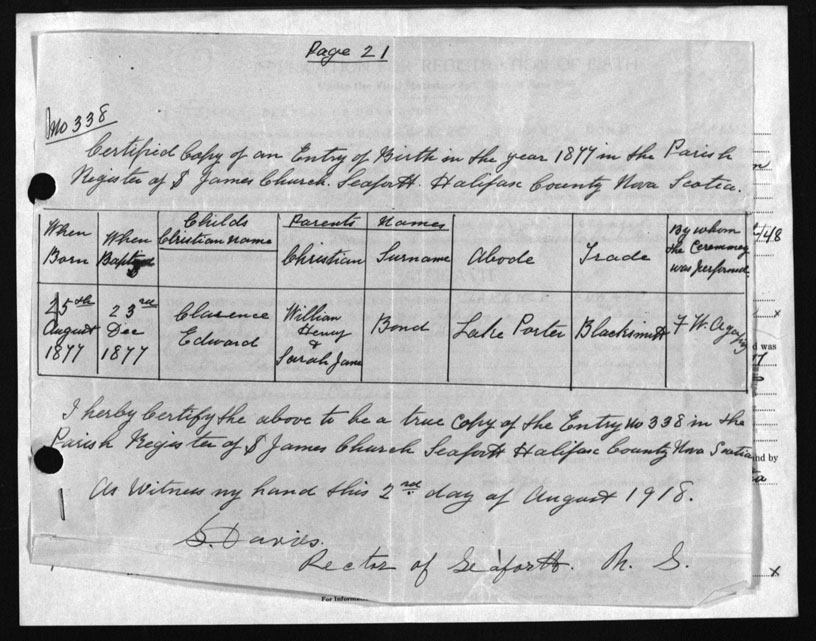 Page 21
No 338
Certified Copy of an Entry of Birth in the year 1877 in the Parish
Register of S James Church. Seaforth. Halifax County Nova Scotia.
When Born
When Baptzd
Childs Christian name
Parents Names
Christian
Surname
Abode
Trade
By whom the Ceremoney was performed
25th August 1877
23rd Dec 1877
Clarence Edward
William Henry & Sarah Jane
Bond
Lake Porter
Blacksmith
F W.
I herby Certify the above to be a true Copy of the Entry No 338 in the
Parish Register of S James Church Seaforth Halifax County Nova Scotia
As Witness my hand this 2nd day of August 1918.
S. Davies.
Rector of Seaforth. N. S.
d was
nd by
For Informa